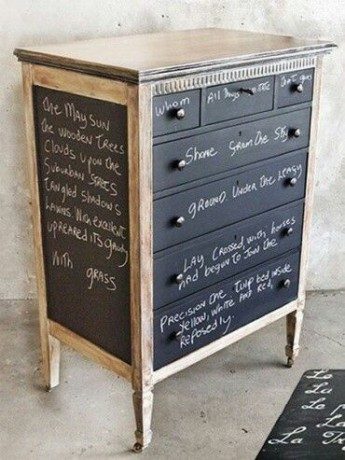 One May Sun
the wooden Trees
Clouds upon the
Suburban
Tangled Shadows
Lawns High excellent
upreared its gaudy
with grass
Whom
All Days
Shone from the Sts
Ground. Under the leafy
Lay Crossed, with horses
had begun to Join the
Precision one Tulip bed, inside
Yellow, White and Red,
Reposedly.
Le
Le
Le Po
La
La Tr